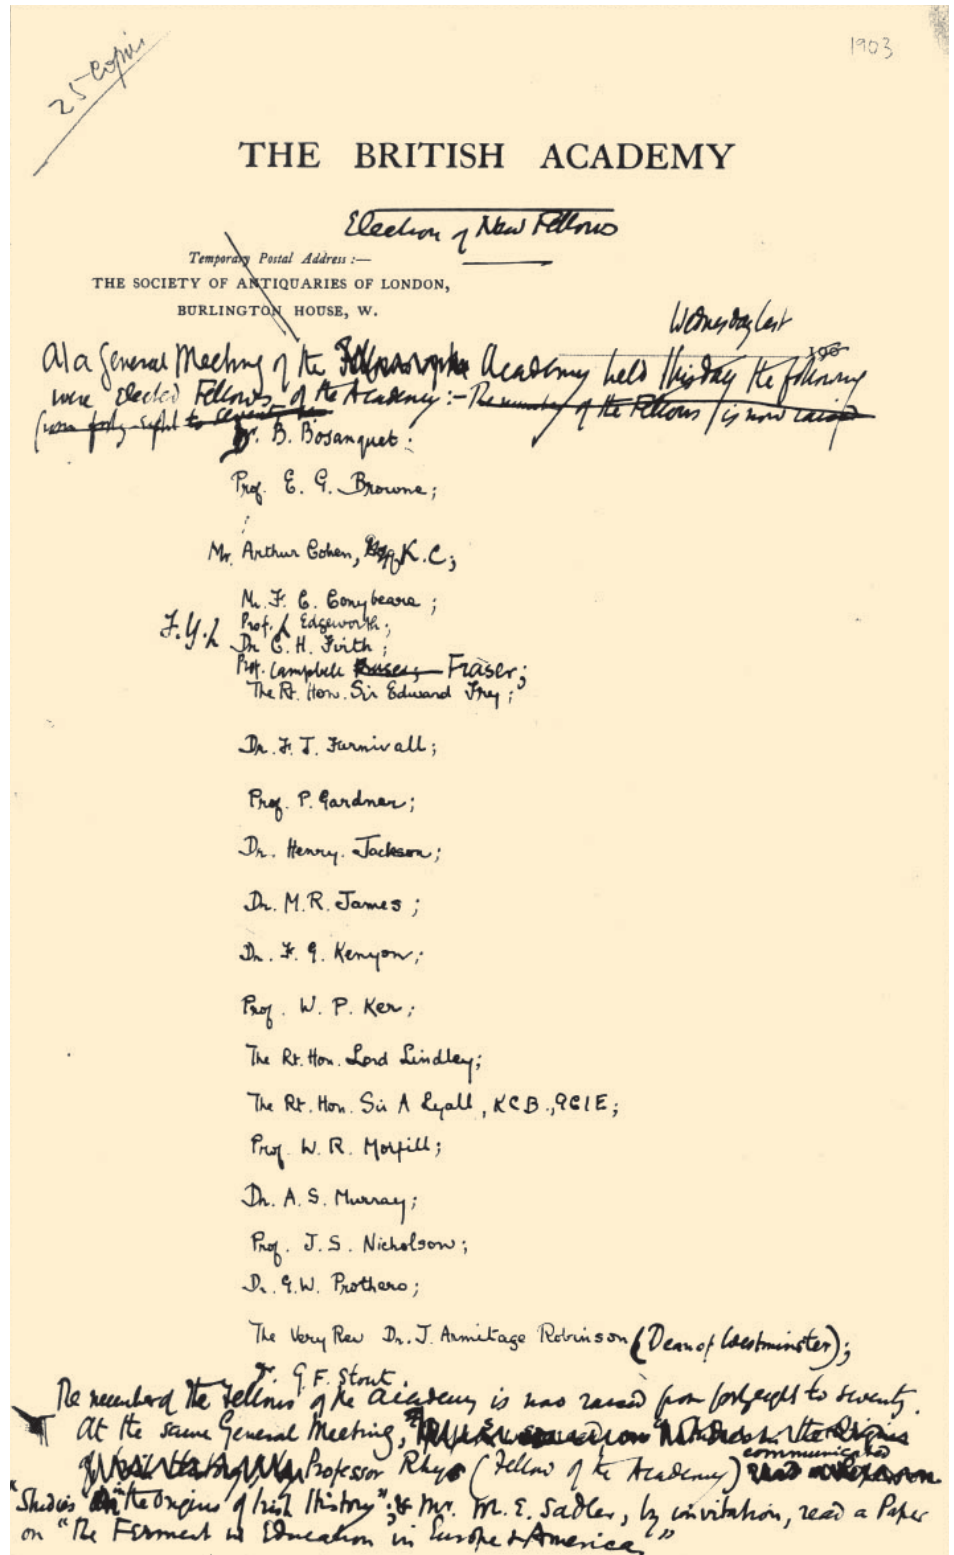 25 Copies
1903
THE BRITISH ACADEMY
Election of New Fellows
Temporary Postal Address :—
THE SOCIETY OF ANTIQUARIES OF LONDON,
BURLINGTON HOUSE, W.
Wednesday last
190
At a General Meeting of the Academy held this day the following
were elected Fellows of the Academy :- The number of the Fellows is now raised
from forty-eight to seventy
Dr. B. Bosanquet;
Prof. E. G. Browne;
Mr. Arthur Cohen, K.C;
Mr. F. C. Conybeare;
F.Y. Prof. Edgeworth;
Dr C. H. Firth;
Prof. Campbell Fraser; Fraser;
The Rt. Hon. Sir Edward Fry;
Dr. F. J. Furnivall;
Prof. P. Gardner;
Dr. Henry Jackson;
Dr. M.R. James;
Dr. F. G. Kenyon;
Prof. W. P. Ker;
The Rt. Hon. Lord Lindley;
The Rt. Hon. Sir A Lyall, KCB., GCIE;
Prof. W. R. Morfill;
Dr. A. S. Murray;
Prof. J. S. Nicholson;
Dr. G.W. Prothero;
The Very Rev Dr. J. Armitage Robinson (Dean of Westminster);
Dr. G. F. Stout.
The number of the Fellows of the Academy is now raised from forty eight to seventy.
At the same General Meeting,
Professor Rhys (Fellow of the Academy) communicated
"Studies in the Origins of Irish History"; & Mr. M. E. Sadler, by invitation, read a Paper
on "The Ferment in Education in Europe & America."